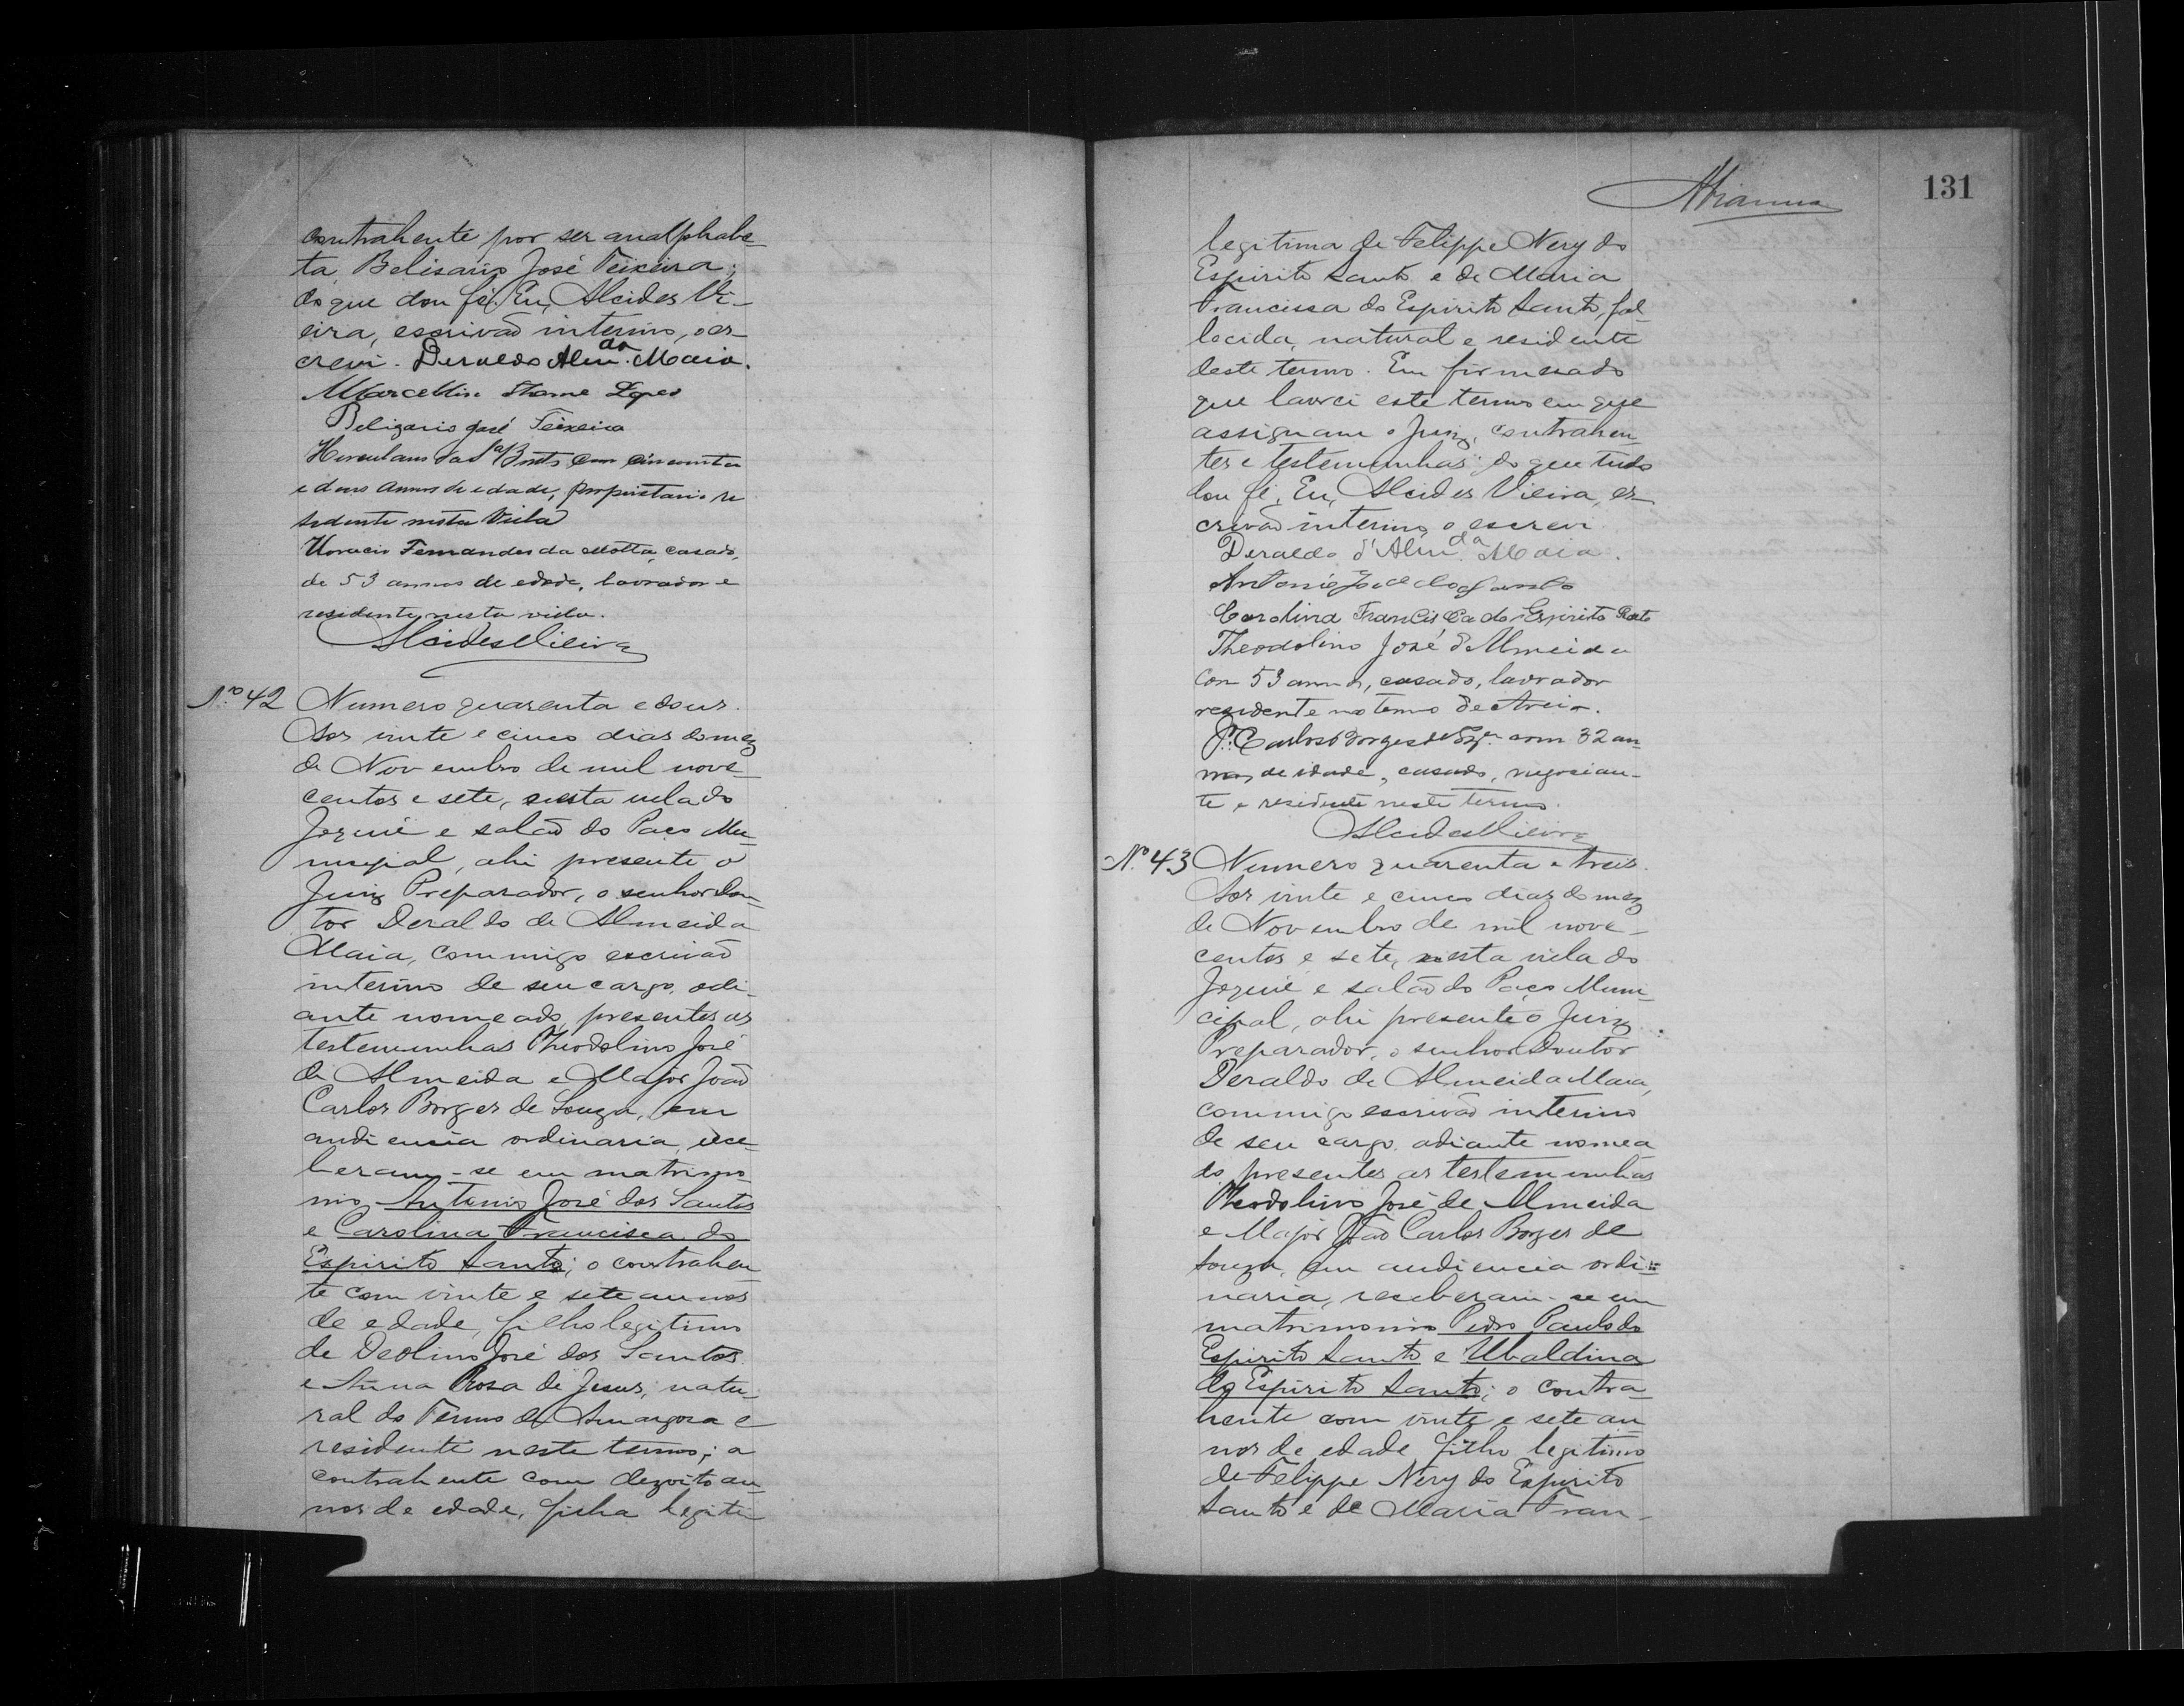 contrahente por ser analphabe-
ta, Belisario José Teixeira;
do que dou fé. Eu, Alcides Vi-
eira, escrivão interino, o es-
crevi. Deraldo Alm.da Maia.
Marcellino Thome Lopes
Beligario José Teixeira
Herculano da S.a Brito com cincoenta
e dous annos de edade, proprietario re
sidente nesta Villa
Horacio Fernandes da Motta, casado,
de 53 annos de edade, lavrador e
residente nesta villa.
Alcides Vieira
N.º 42 Numero quarenta e dous.
Aos vinte e cinco dias do mez
de Novembro de mil nove-
centos e sete, nesta villa do
Jequié e salão do Paço Mu-
nicipal, ahi presente o
Juiz Preparador, o senhor Dou-
tor Deraldo de Almeida
Maia, commigo escrivão
interino de seu cargo, adi-
ante nomeado, presentes as
testemunhas Theodolino José
de Almeida e Major João
Carlos Borges de Souza, em
audiencia ordinaria, rece-
beram-se em matrimo-
nio Antonio José dos Santos
e Carolina Francisca do
Espirito Santo; o contrahen-
te com vinte e sete annos
de edade, filho legitimo
de Deolino José dos Santos
e Anna Rosa de Jesus, natu-
ral do Termo de Amargosa e
residente neste termo; a
contrahente com dezoito an-
nos de edade, filha legiti-
131
legitima de Felippe Nery do
Espirito Santo e de Maria
Francisca do Espirito Santo, fal-
lecida, natural e residente
deste termo. Em firmeza do
que lavrei este termo em que
assignam o Juiz, contrahen-
tes e testemunhas; do que tudo
dou fé. Eu, Alcides Vieira, es-
crivão interino, o escrevi.
Deraldo d'Alm.da Maia.
Antonio José dos Santos
Carolina Francis Ca do Espirito Santo
Theodolino José d'Almeida
Com 53 annos, casado, lavrador
residente no termo de Areia.
Carlos Borges de Sz.a com 32 an-
nos de idade, casado, negocian-
te e residente neste termo.
Alcides Vieira
N.º 43 Numero quarenta e treis.
Aos vinte e cinco dias do mez
de Novembro de mil nove-
centos e sete, nesta villa do
Jequié e salão do Paço Muni-
cipal, ahi presente o Juiz
Preparador, o senhor Doutor
Deraldo de Almeida Maia,
commigo escrivão interino
de seu cargo, adiante nomea
do, presentes as testemunhas
Theodolino José de Almeida
e Major João Carlos Borges de
Souza, em audiencia ordi-
naria, receberam-se em
matrimonio Pedro Paulo do
Espirito Santo e Ubaldina
do Espirito Santo; o contra-
hente com vinte e sete an-
nos de edade filho legitimo
de Felippe Nery do Espirito
Santo e de Maria Fran-